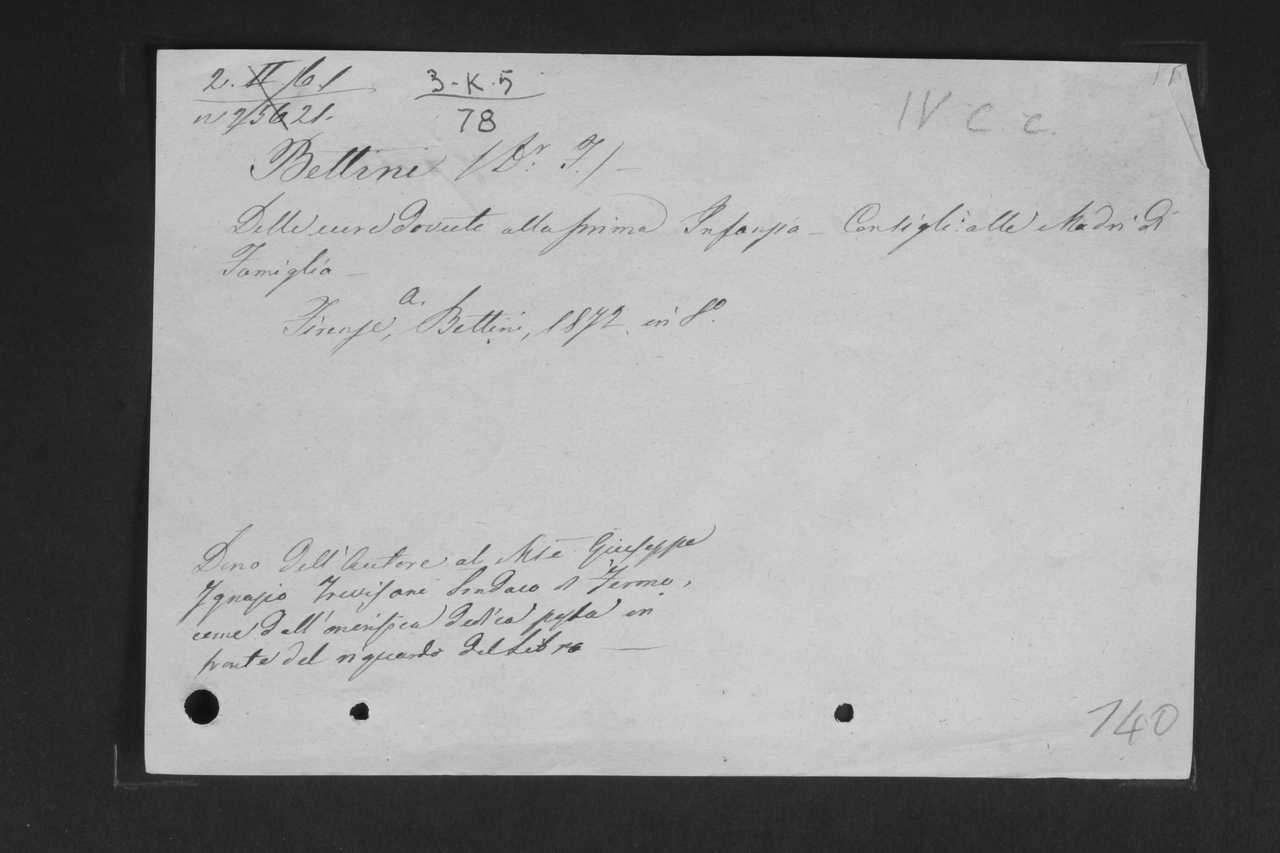 3-K-5
78
IV C. C.
Bettini (Dr. F.) —
Delle cure dovute alla prima Infanzia — Consigli alle Madri di
Famiglia —
Firenze, a. Bettini, 1872. in 8º.
Dono dell'Autore al Mse Giuseppe
Ignazio Trevisani Sindaco di Fermo,
come dall'onorifica dedica posta in
fronte del riguardo del Libro —
140